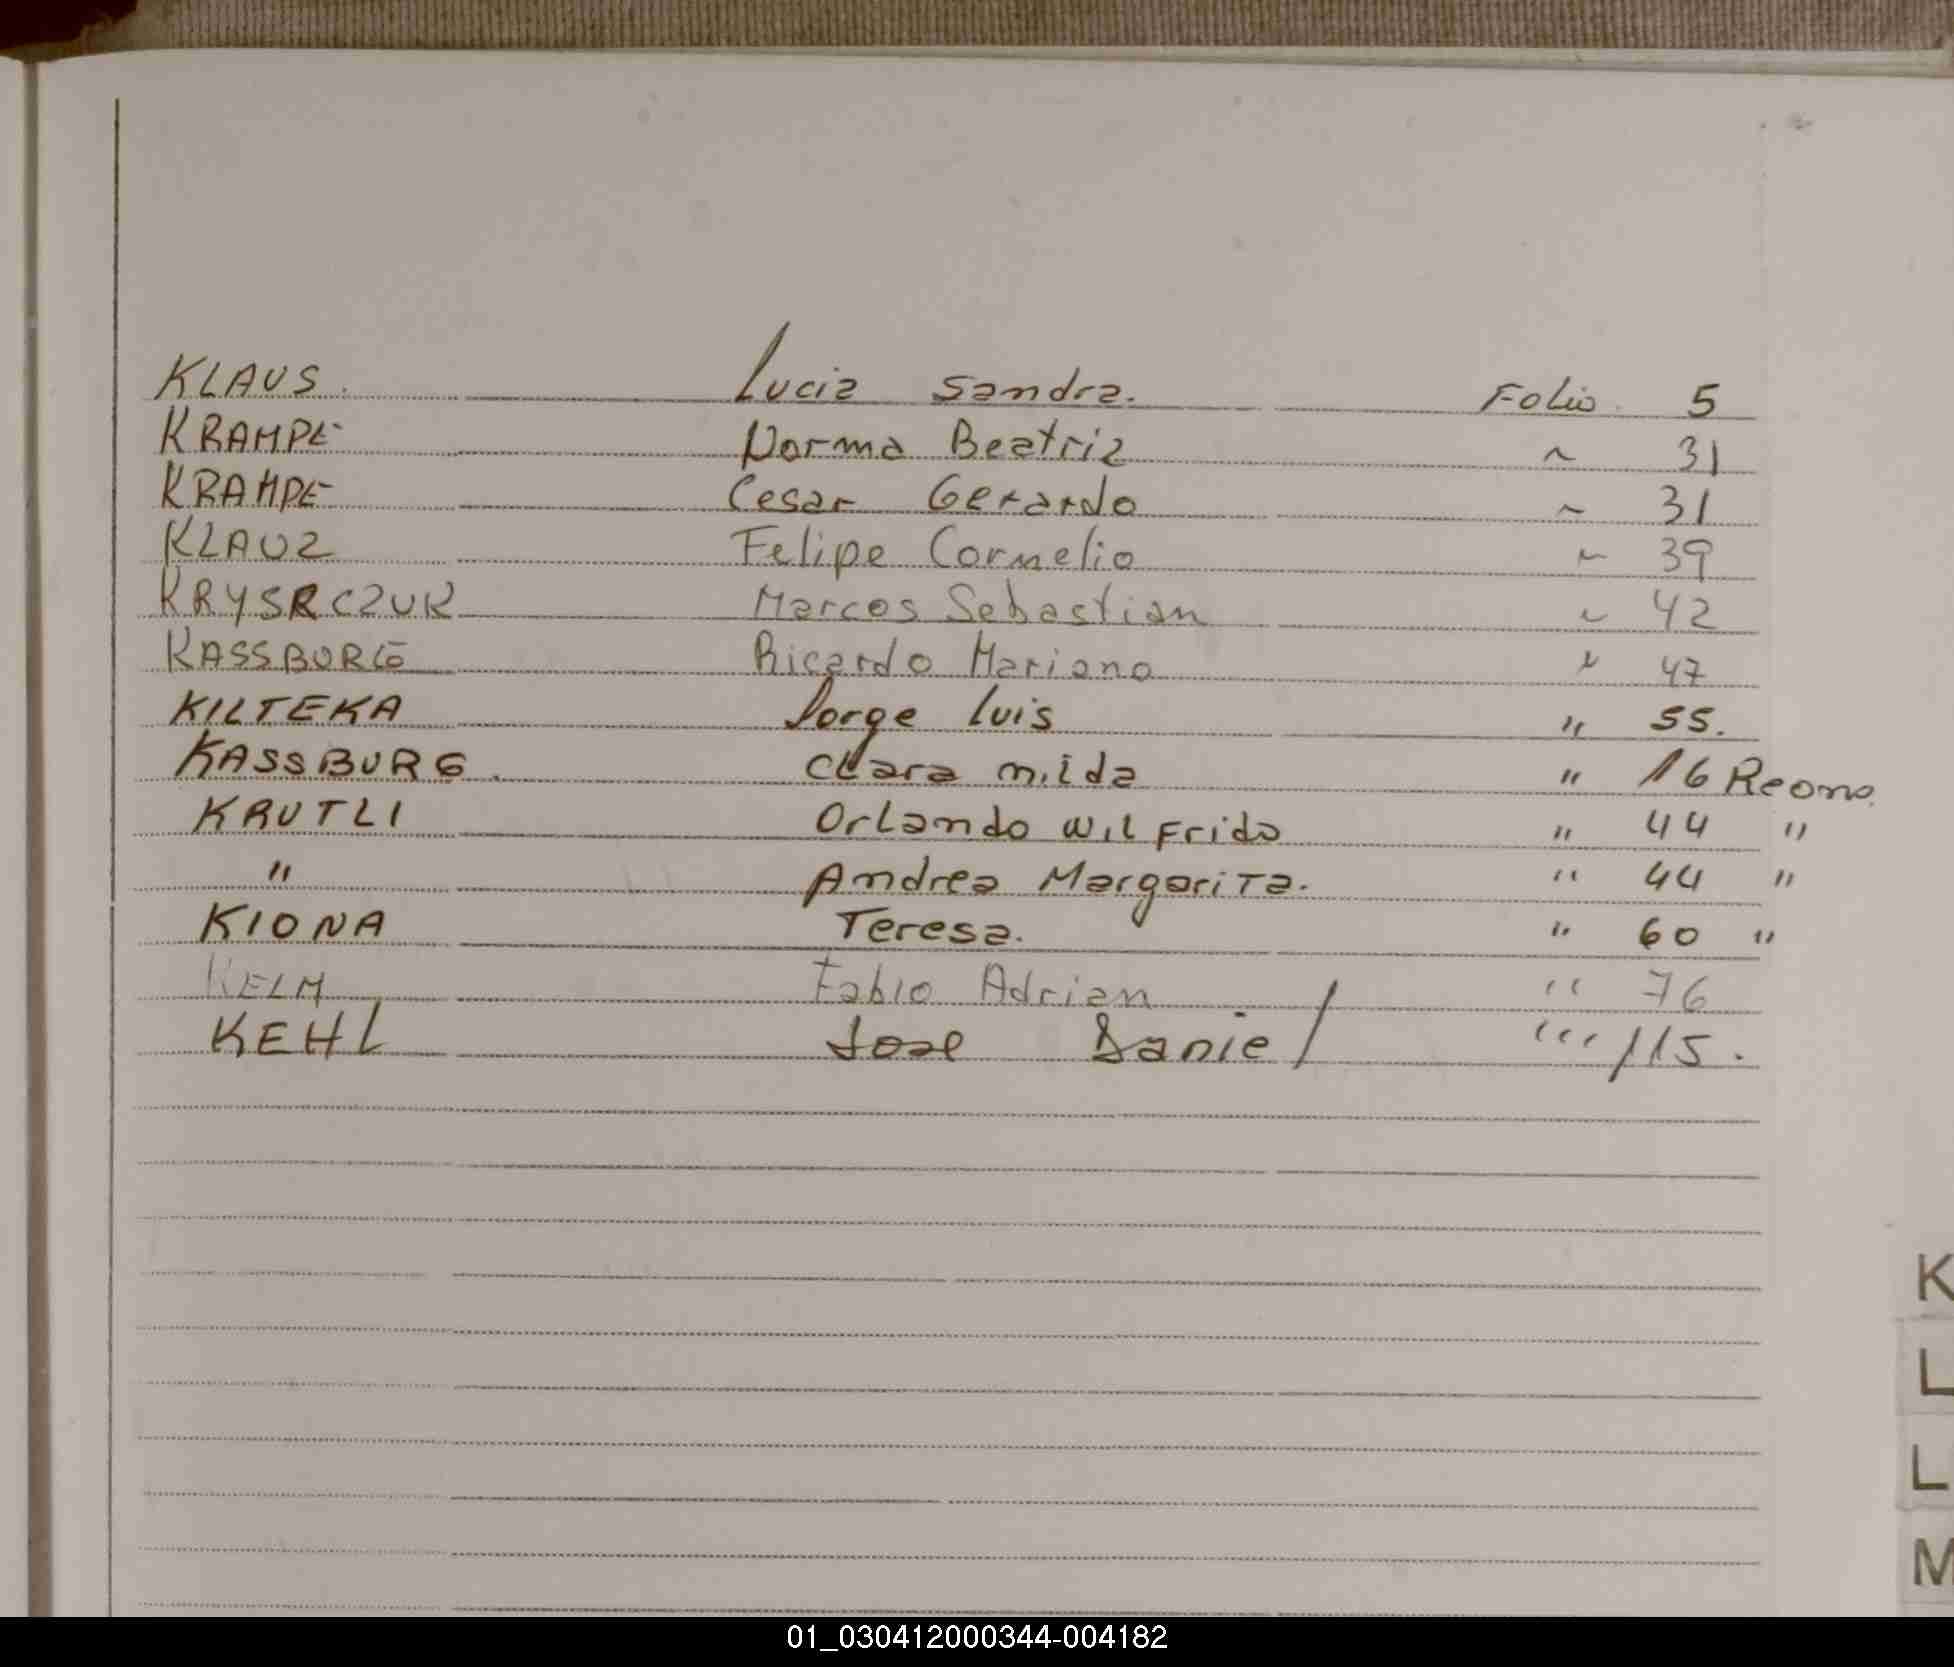 KLAUS. Lucia Sandra. Folio 5
KRAMPE Norma Beatriz ~ 31
KRAMPE Cesar Gerardo ~ 31
KLAUZ Felipe Cornelio ~ 39
KRYSRCZUK Marcos Sebastian ~ 42
KASSBURG Ricardo Mariano ~ 47
KILTEKA Jorge Luis " 55.
KASSBURG. Clara nilda " 16 Recono.
KRUTLI Orlando Wilfrido " 44 "
" Andrea Margarita. " 44 "
KIONA Teresa. " 60 "
KELM Fabio Adrian " 76
KEHL Jose Daniel ''' 115.
K
L
L
M
01_030412000344-004182